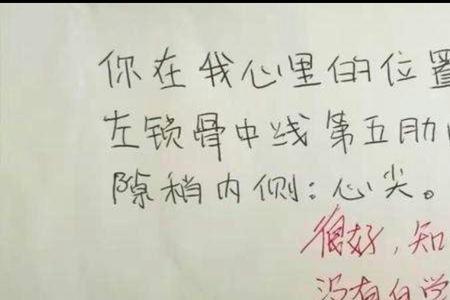 你在我心里的位置
左锁骨中线第五肋
隙稍内侧:心尖。
很好,知
没有白学